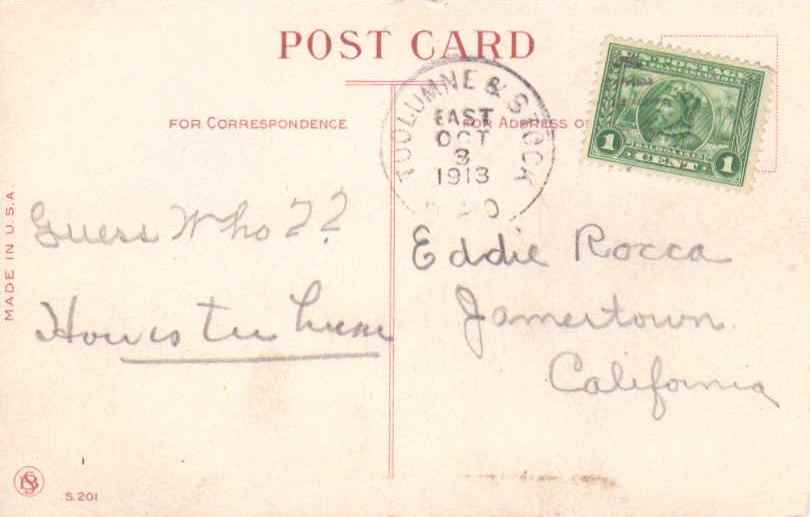 POST CARD
FOR CORRESPONDENCE
FOR ADDRESS O
TUOLUMNE & STOCK
EAST
OCT
3
1913
U.S. POSTAGE
1 CENT 1
MADE IN U.S.A.
Guess Who??
How is
Eddie Rocca
Jamestown
California
S.201